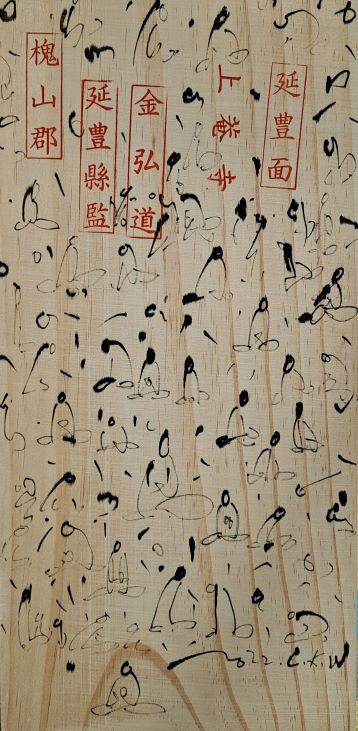 延豊面
上菴寺
金弘道
延豊縣監
槐山郡
2022. C.K.W